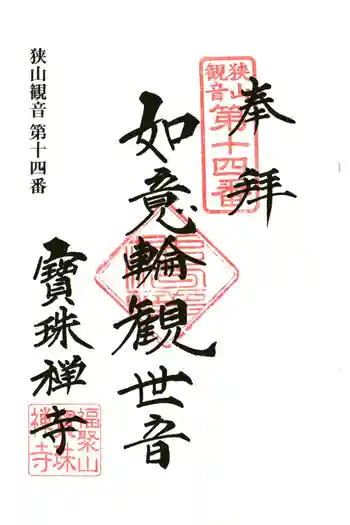 奉拝
狭山
観音
第十四番
如意輪観世音
寶珠禅寺
福聚山
寶珠
禅寺
狭山観音 第十四番